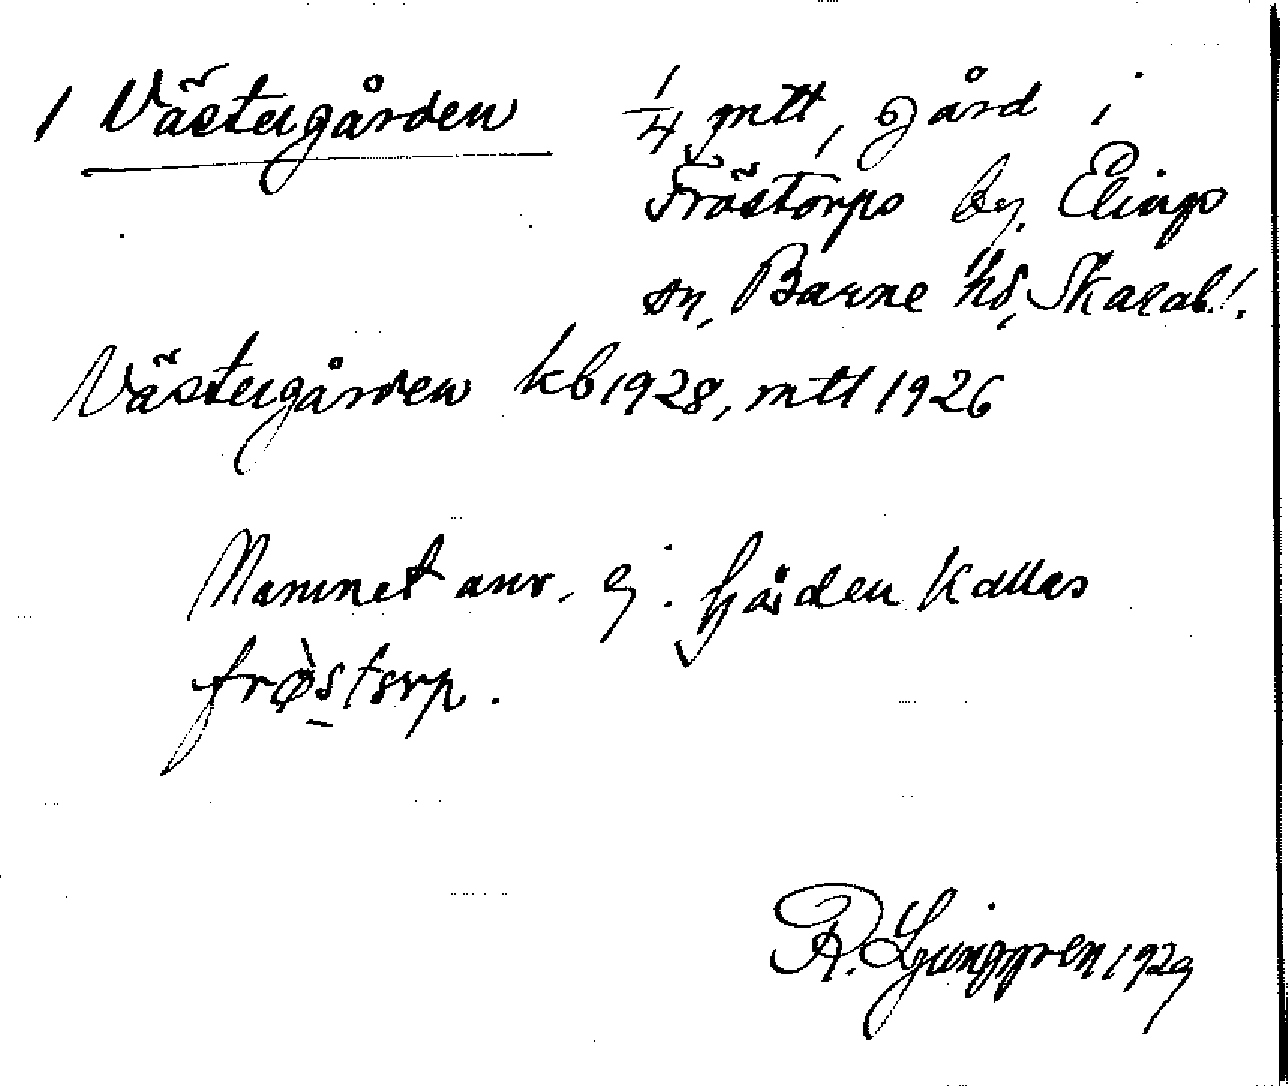 1 Västergården 1/4 mtl, gård i
Fröstorps by, Elings
sn, Barne hd, Skarab. l.
Västergården kb 1928, mtl 1926
Namnet anv. ej. Gården kallas
frø̀storp.
R. Ljunggren 1929